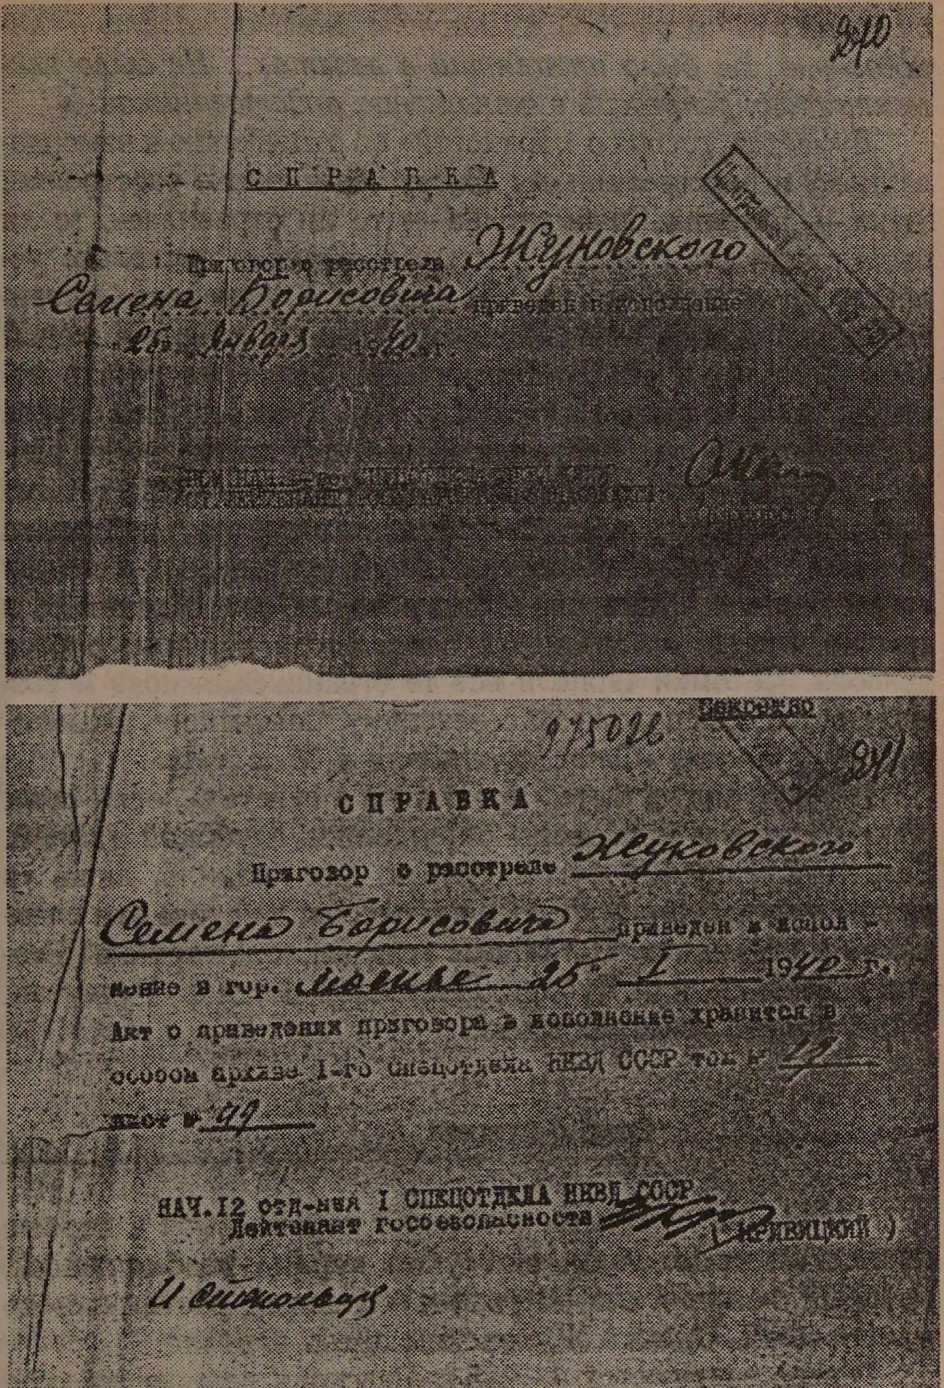 240
СПРАВКА
Приговор о расстреле Жуковского
Семена Борисовича приведен в исполнение
"25" Января 1940 г.
Секретно
975026
241
СПРАВКА
Приговор о расстреле Жуковского
Семена Борисовича приведен в испол-
нение в гор. Москве "25" I 1940 г.
Акт о приведении приговора в исполнение хранится в
особом архиве 1-го спецотдела НКВД СССР том № 19
лист № 99
НАЧ. 12 отд-ния I СПЕЦОТДЕЛА НКВД СССР
Лейтенант госбезопасности
(КРИВИЦКИЙ)